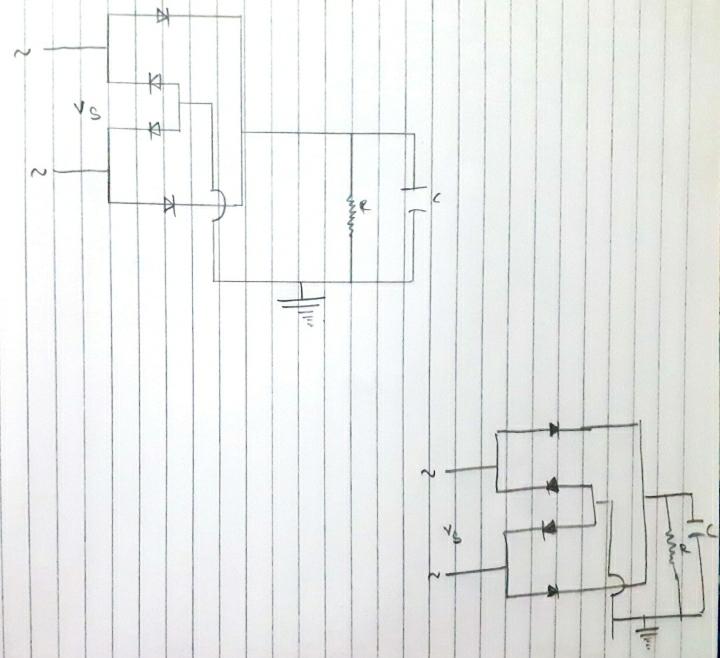 ~
Vs
~
R
C
~
Vs
~
R
C